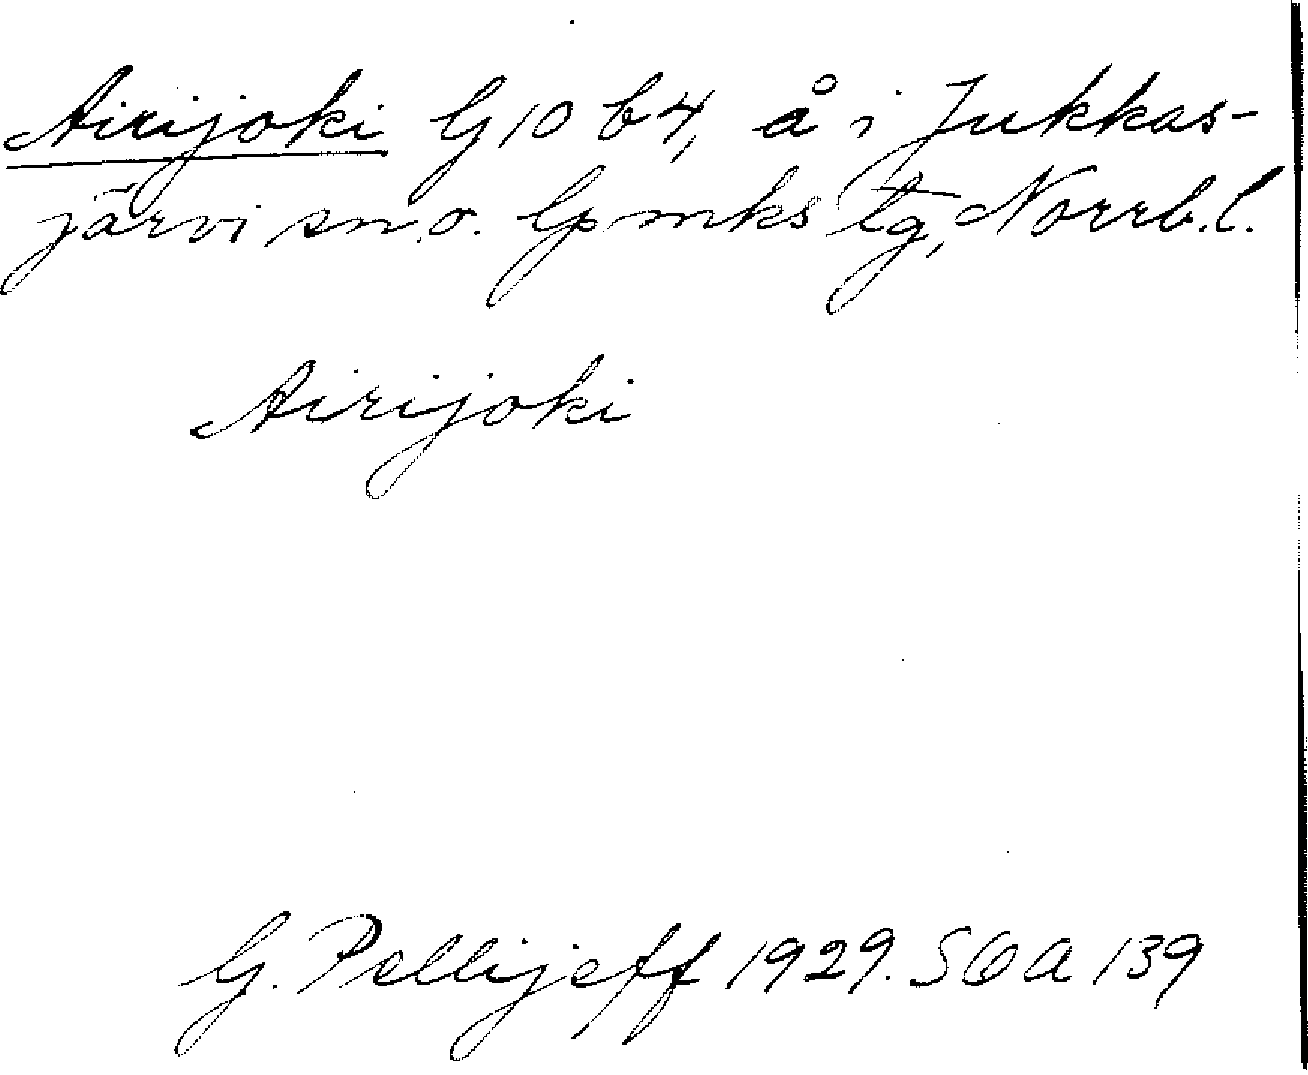 Airijoki G 10 b 4, å i Jukkas-
järvi sn. o. lpmks tg, Norrb. l.
Airijoki
G. Pellijeff 1929. SOA 139